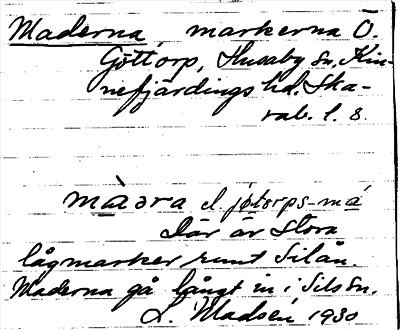 Maderna, markerna Ö.
Göttorp, Husaby sn, Kin-
nefjärdings hd. Ska-
rab. l. s.
màəra el jötorps-má
Där är stora
lågmarker runt Silån.
Maderna gå långt in i Sils sn.
L. Madsén 1930